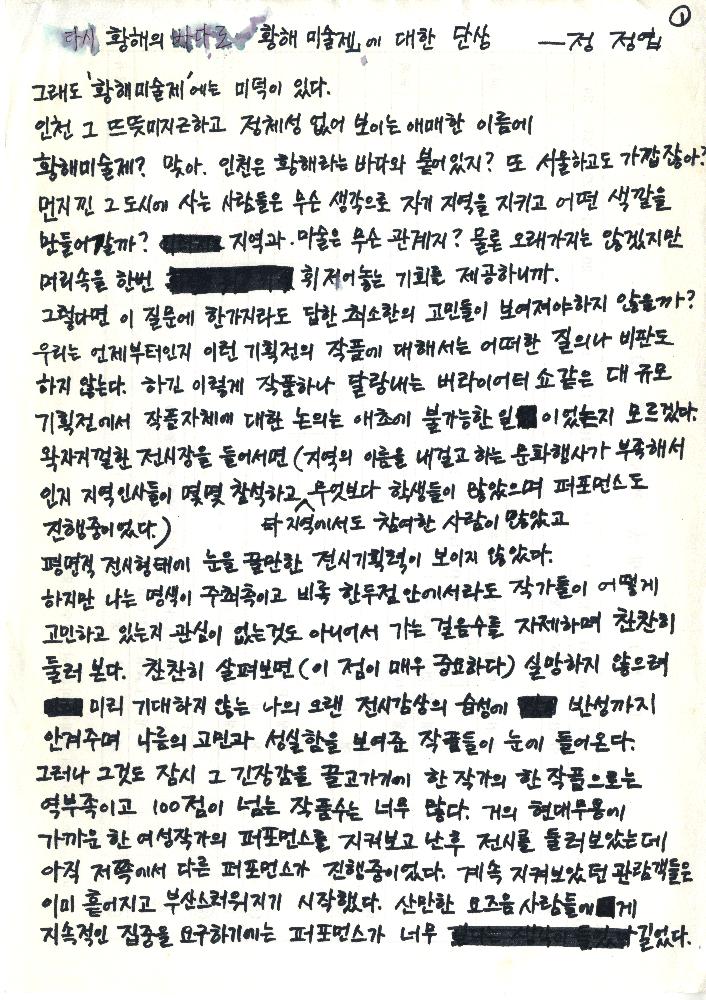 ①
다시 황해의 바다로 황해 미술제」에 대한 단상 — 정 정엽
그래도 '황해미술제'에는 미덕이 있다.
인천 그 뜨뜻미지근하고 정체성 없어 보이는 애매한 이름에
황해미술제? 맞아. 인천은 황해라는 바다와 붙어있지? 또 서울하고도 가깝잖아?
먼지낀 그 도시에 사는 사람들은 무슨 생각으로 자기 지역을 지키고 어떤 색깔을
만들어 갈까? 지역과 미술은 무슨 관계지? 물론 오래가지는 않겠지만
머리속을 한번 휘저어놓는 기회를 제공하니까.
그렇다면 이 질문에 한가지라도 답한 최소한의 고민들이 보여져야하지 않을까?
우리는 언제부터인지 이런 기획전의 작품에 대해서는 어떠한 질의나 비판도
하지 않는다. 하긴 이렇게 작품하나 달랑내는 버라이어티 쇼같은 대 규모
기획전에서 작품자체에 대한 논의는 애초에 불가능한 일 이었는지 모르겠다.
왁자지껄한 전시장을 들어서면 (지역의 이름을 내걸고 하는 문화행사가 부족해서
인지 지역인사들이 몇몇 참석하고 무엇보다 학생들이 많았으며 퍼포먼스도
진행중이었다.) 타 지역에서도 참여한 사람이 많았고
평면적 전시형태에 눈을 끌만한 전시기획력이 보이지 않았다.
하지만 나는 명색이 주최측이고 비록 한두점 안에서라도 작가들이 어떻게
고민하고 있는지 관심이 없는것도 아니어서 가는 걸음수를 자제하며 찬찬히
둘러 본다. 찬찬히 살펴보면 (이 점이 매우 중요하다) 실망하지 않으려
미리 기대하지 않는 나의 오랜 전시감상의 습성에 반성까지
안겨주며 나름의 고민과 성실함을 보여준 작품들이 눈에 들어온다.
그러나 그것도 잠시 그 긴장감을 끌고가기에 한 작가의 한 작품으로는
역부족이고 100점이 넘는 작품수는 너무 많다. 거의 현대무용에
가까운 한 여성작가의 퍼포먼스를 지켜보고 난후 전시를 둘러보았는데
아직 저쪽에서 다른 퍼포먼스가 진행중이었다. 계속 지켜보았던 관람객들은
이미 흩어지고 부산스러워지기 시작했다. 산만한 요즈음 사람들에게
지속적인 집중을 요구하기에는 퍼포먼스가 너무 길었다.